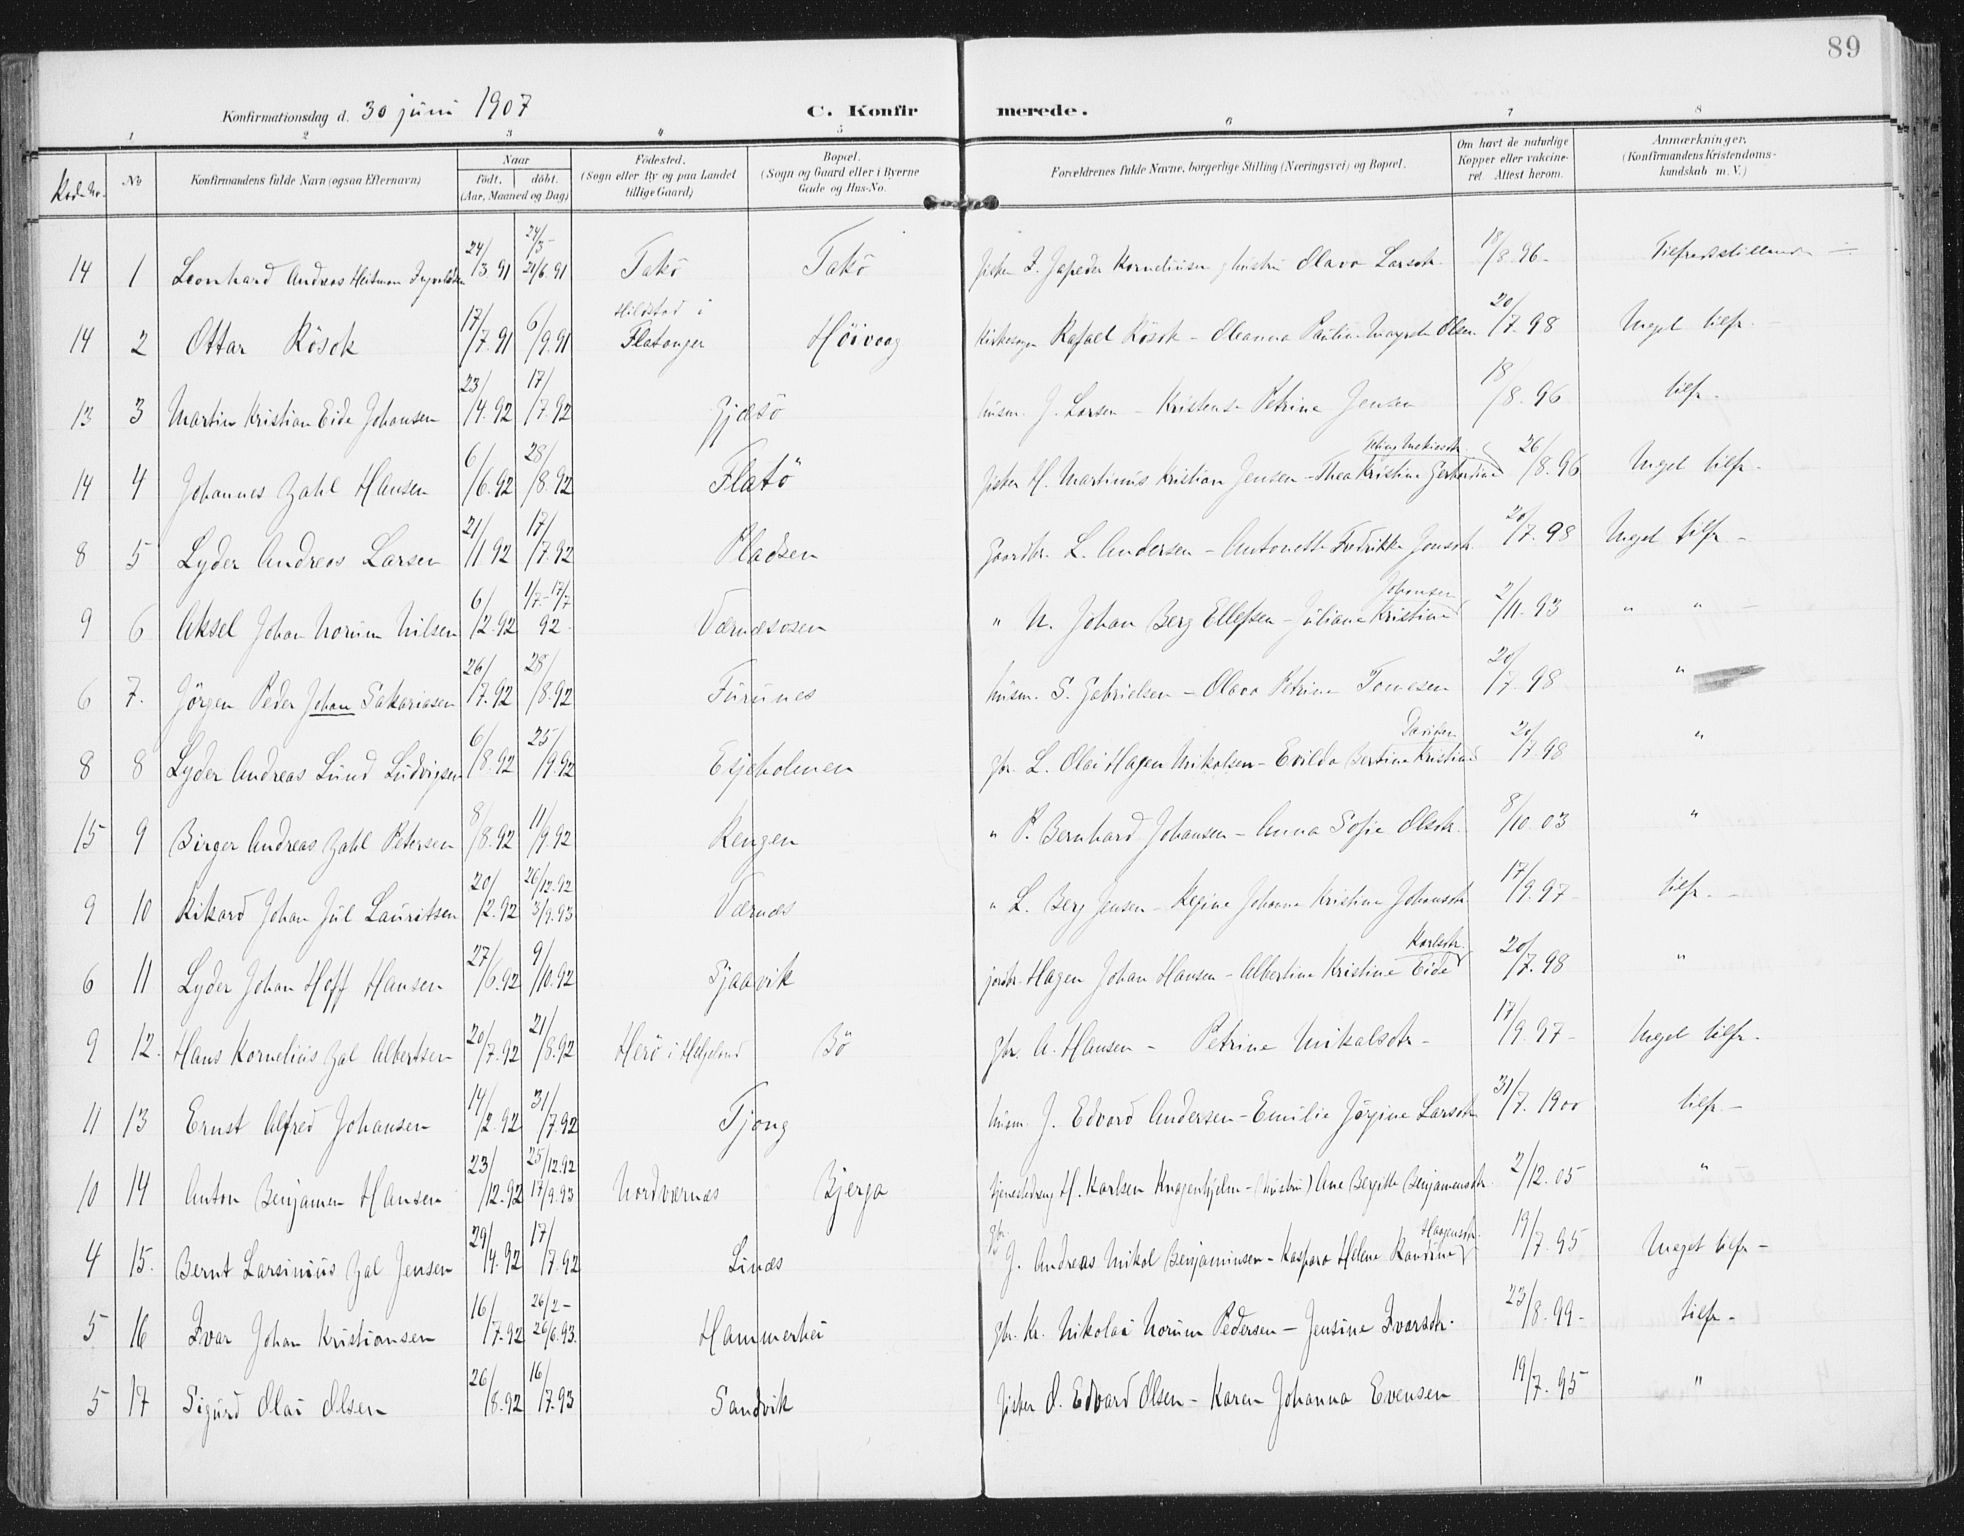 89
Konfirmationsdag d. 30 juni 1907 C. Konfir merede.
1 2 3 4 5 6 7 8
No Konfirmandens fulde Navn (ogsaa Efternavn) Naar født, døbt. (Aar, Maaned og Dag) Fødested. (Sogn eller By og paa Landet tillige Gaard) Bopæl. (Sogn og Gaard eller i Byerne Gade og Hus-No. Forældrenes fulde Navne, borgerlige Stilling (Næringsvei) og Bopæl. Om havt de naturlige Kopper eller vakcineret. Attest herom. Anmærkninger. (Konfirmandens Kristendomskundskab m. V.)
14 1 Leonhard Andreas Heitman 24/3 91 24/3- 24/6 91 Takø Takø Korneliusen Olava Larsdr. 18/8 96 Tilfredsstillende
14 2 Ottar Røsok 17/7.91 6/9.91 Hildstad i Flatanger Høivaag Kirkesanger Rafael Røsok - Oleanna Pauline Margrethe Olsen 20/7.98 Meget tilfr.
13 3 Martin Kristian Eide Johansen 23/4.92 17/7.92 Gjæsø husm. J. Larsen - Petrine Jensen 18/8.96 tilfr.
14 4 Johannes Zahl Hansen 6/6.92 28/8.92 Flatø fisker H. Martinus Kristian Jensen - Thea Kristine 26/8.96 Meget tilfr.
8 5 Lyder Andreas Larsen 21/1 92 17/7.92 Pladsen gaardbr. L. Andersen - Antonette Fredrikke Jensdr. 20/7.98 Meget tilfr -
9 6 Aksel Johan Norum Nilsen 6/2.92 1/7-17/7 92 Værnæsosen " N. Johan Berg Ellefsen - Juliane Kristine Johansen 2/11.93 " " -
6 7. Jörgen Peder Johan Sakariasen 26/7.92 28/8.92 Furunes husm. S. Gabrielsen - Olava Petrine Tomesen 20/7.98 "
8 8 Lyder Andreas Lund Ludvigsen 6/8.92 25/9.92 Esjeholmen gbr. L. Olai Hagen Mikalsen - Evilda Bertine Kristine 20/7.98 "
15 9 Birger Andreas Zahl Petersen 8/8.92 11/9.92 Rengen " P. Bernhard Johansen - Anna Sofie Olsdr. 8/10.03 "
9 10 Rikard Johan Jul Lauritsen 20/2.92 26/12.92 3/9.93 Værnæs " L. Berg Jensen - Regine Johanna Kristine Johansdr 17/9.97 tilfr. -
6 11 Lyder Johan Hoff Hansen 27/6.92 9/10.92 Sjaavik Hagen Johan Hansen - Albertine Kristine Eide Karlsdr. 20/7.98 "
9 12. Hans Kornelius Zal Albertsen 20/7.92 21/8.92 Herö i Helgeland Bö gbr. A. Hansen - Petrine Mikalsdr - 17/9.97 - Meget tilfr.
11 13 Ernst Alfred Johansen 14/2.92 31/7.92 Tjong husm. J. Edvard Andersen - Emilie Jörgine Larsdr 31/7.1900 tilfr. -
10 14 Anton Benjamen Hansen 23/12.92 25/12.92 17/9.93 Nordværnæs Bjerga tjenestedreng H. Karlsen Knagenhjelm - (hustru) Ane Bergitte Benjamensdr. 2/12.05 "
4 15. Bernt Larsinius Zal Jensen 29/4.92 17/7.92 Linæs gbr. J. Andreas Mikal Benjaminsen - Kaspara Helene Randine Haagensdr. 19/7.95 Meget tilfr -
5 16 Ivar Johan Kristiansen 16/7.92 26/2- 26/6.93. Hammerhei gbr. Kr. Nikolai Norum Pedersen - Jensine Ivarsdr. 23/8.99 - tilfr -
5 17 Sigurd Olai Olsen 26/8.92 16/7.93 Sandvik fisker O. Edvard Olsen - Karen Johanna Evensen 19/7.95 "